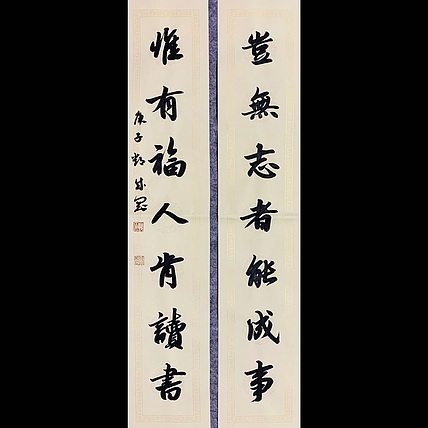 豈無志者能成事
惟有福人肯讀書
庚子